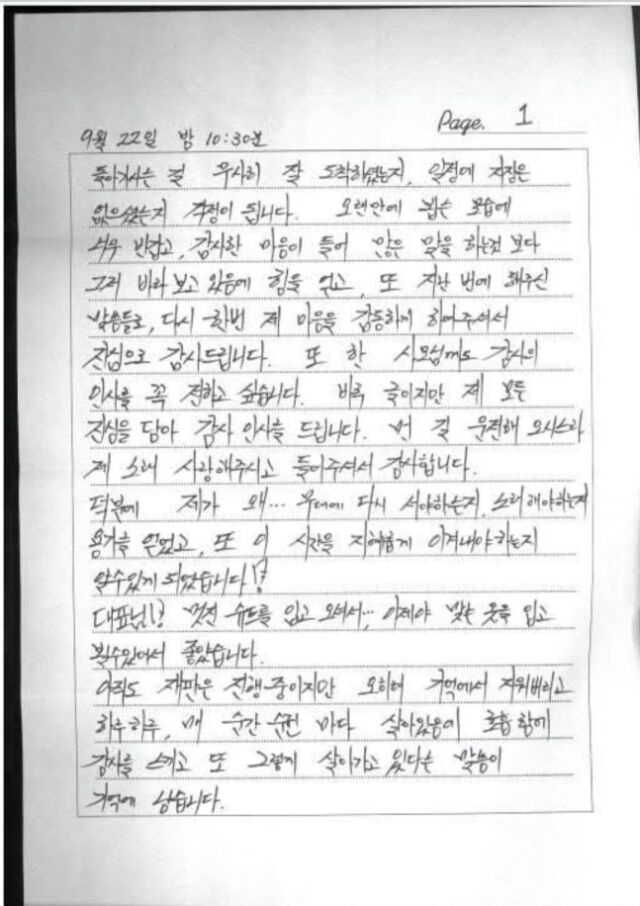 Page. 1
9월 22일 밤 10:30분
돌아가시는 길 무사히 잘 도착하였는지, 일정에 지장은
없으셨는지 걱정이 됩니다. 오랜만에 뵙는 모습에
너무 반갑고, 감사한 마음이 들어 많은 말을 하는것 보다
그저 바라보고 있음에 힘을 얻고, 또 지난 번에 해주신
말씀들로, 다시 한번 제 마음을 감동하게 하여주셔서
진심으로 감사드립니다. 또 한 사모님께도 감사의
인사를 꼭 전하고 싶습니다. 비록 글이지만 제 모든
진심을 담아 감사 인사를 드립니다. 먼 길 운전해 오시느라
제 노래 사랑해주시고 들어주셔서 감사합니다.
덕분에 제가 왜... 무대에 다시 서야하는지, 노래해야하는지
용기를 얻었고, 또 이 시간을 지혜롭게 이겨내야하는지
알수있게 되었습니다!?
대표님!? 멋진 슈트를 입고 오셔서... 이제야 맞는 옷을 입고
뵐수있어서 좋았습니다.
아직도 재판은 진행중이지만 오히려 기억에서 지워버리고
하루하루, 매 순간순간 마다 살아있음에 호흡함에
감사를 느끼고 또 그렇게 살아가고 있다는 말씀이
기억에 남습니다.